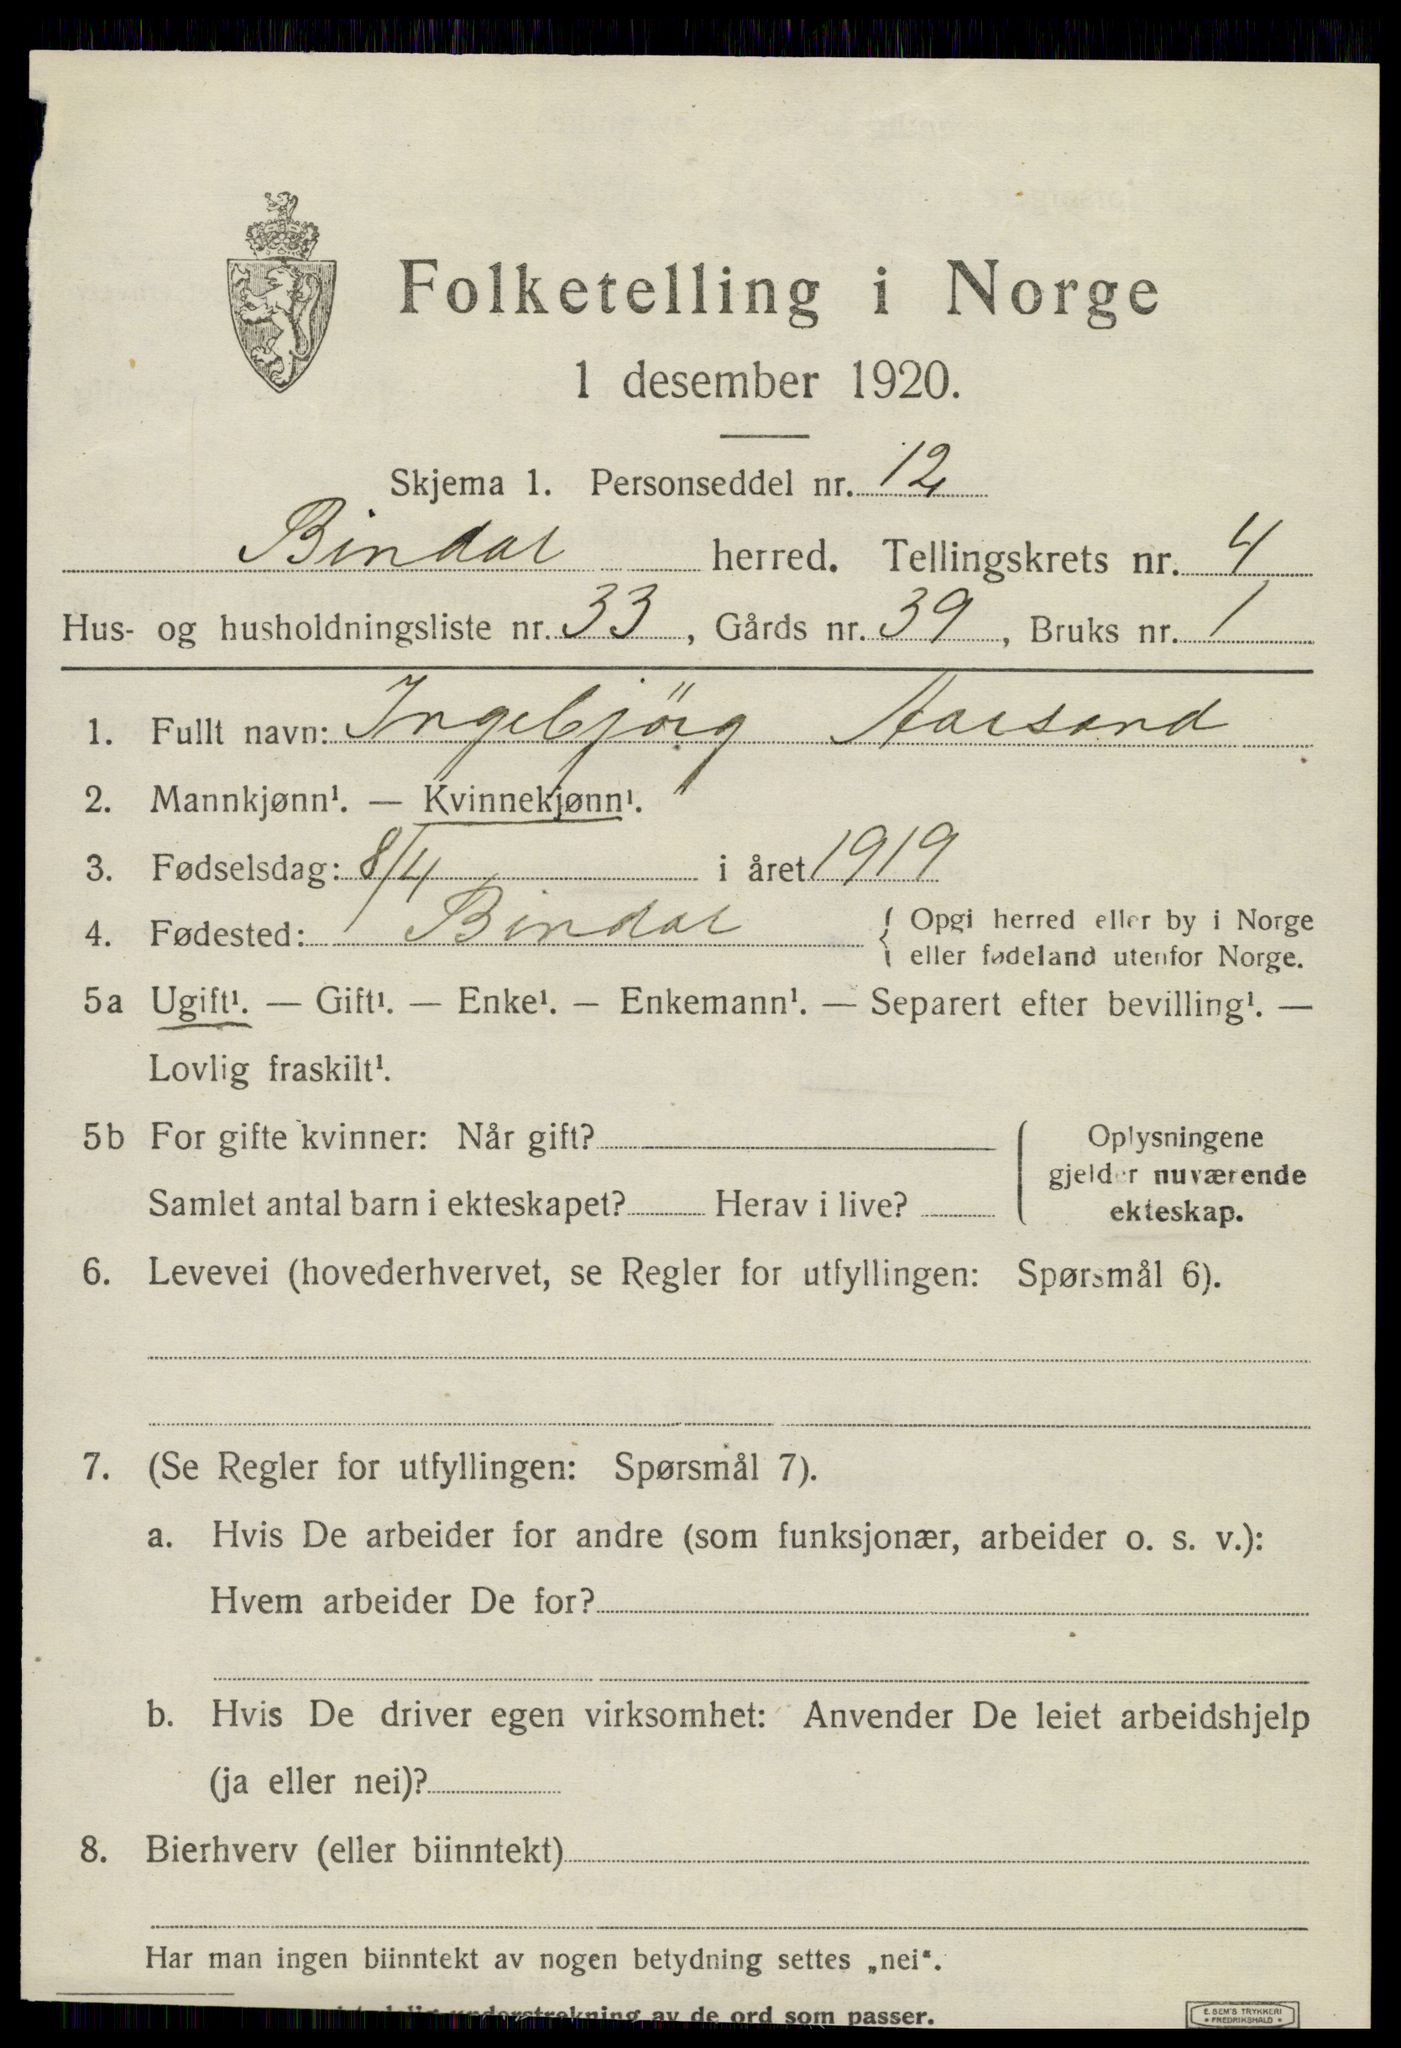 Folketelling i Norge
1 desember 1920.
Skjema 1. Personseddel nr. 12
Bindal herred. Tellingskrets nr. 4
Hus- og husholdningsliste nr. 33, Gårds nr. 39, Bruks nr. 1
1. Fullt navn: Ingebjörg Aarsand
2. Mannkjønn¹. — Kvinnekjønn¹.
3. Fødselsdag: 8/4 i året 1919
4. Fødested: Bindal { Opgi herred eller by i Norge
eller fødeland utenfor Norge.
5a Ugift¹. — Gift¹. — Enke¹. — Enkemann¹. — Separert efter bevilling¹. —
Lovlig fraskilt¹.
5b For gifte kvinner: Når gift?
Samlet antal barn i ekteskapet? Herav i live?
Oplysningene
gjelder nuværende
ekteskap.
6. Levevei (hovederhvervet, se Regler for utfyllingen: Spørsmål 6).
7. (Se Regler for utfyllingen: Spørsmål 7).
a. Hvis De arbeider for andre (som funksjonær, arbeider o. s. v.):
Hvem arbeider De for?
b. Hvis De driver egen virksomhet: Anvender De leiet arbeidshjelp
(ja eller nei)?
8. Bierhverv (eller biinntekt)
Har man ingen biinntekt av nogen betydning settes „nei“.
understrekning av de ord som passer.
E. SEM'S TRYKKERI
• FREDRIKSHALD •